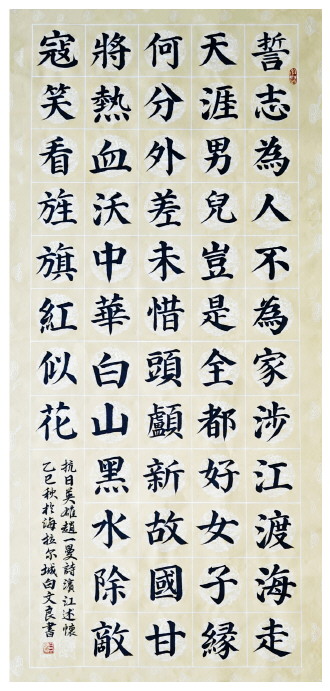 誓志為人不為家涉江渡海走
天涯男兒豈是全都好女子緣
何分外差未惜頭顱新故國甘
將熱血沃中華白山黑水除敵
寇笑看旌旗紅似花
抗日英雄趙一曼詩濱江述懷
乙巳秋於海拉尔城白文良書